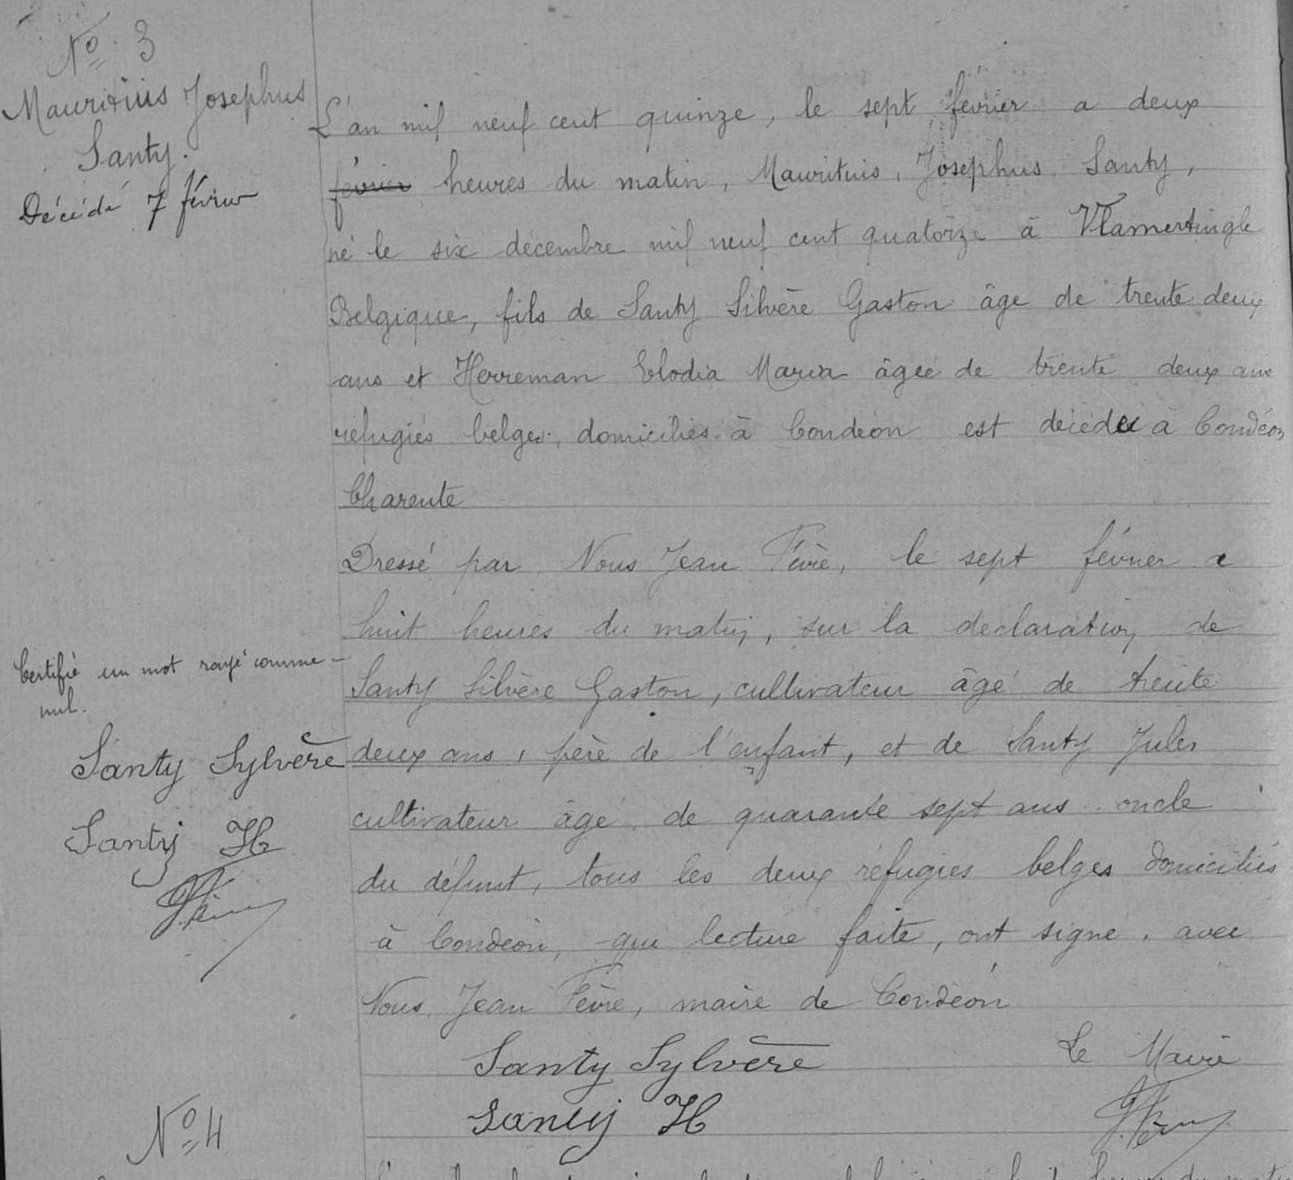 Nº 3
Mauritius Josephus
Santy.
Décédé 7 février
L'an mil neuf cent quinze, le sept février a deux
février heures du matin, Mauritius, Josephus Santy,
né le six décembre mil neuf cent quatorze à Vlamertingle
Belgique, fils de Santy Silvère Gaston âge de trente deux
ans et Herreman Elodia Maria âgée de trente deux ans
réfugiés belges, domiciliés à Condéon est décédé à Condéon
Charente
Dressé par Nous Jean Fèvre, le sept février a
huit heures du matin, sur la déclaration de
Santy Silvère Gaston, cultivateur âgé de trente
deux ans, père de l'enfant, et de Santy Jules
cultivateur âgé de quarante sept ans oncle
du défunt, tous les deux réfugiés belges domiciliés
à Condéon, que lecture faite, ont signé, avec
Nous Jean Fèvre, maire de Condéon
Certifié un mot rayé comme
nul.
Santy Sylvère
Santy H
Santy Sylvère
Le Maire
Santy H
Nº 4